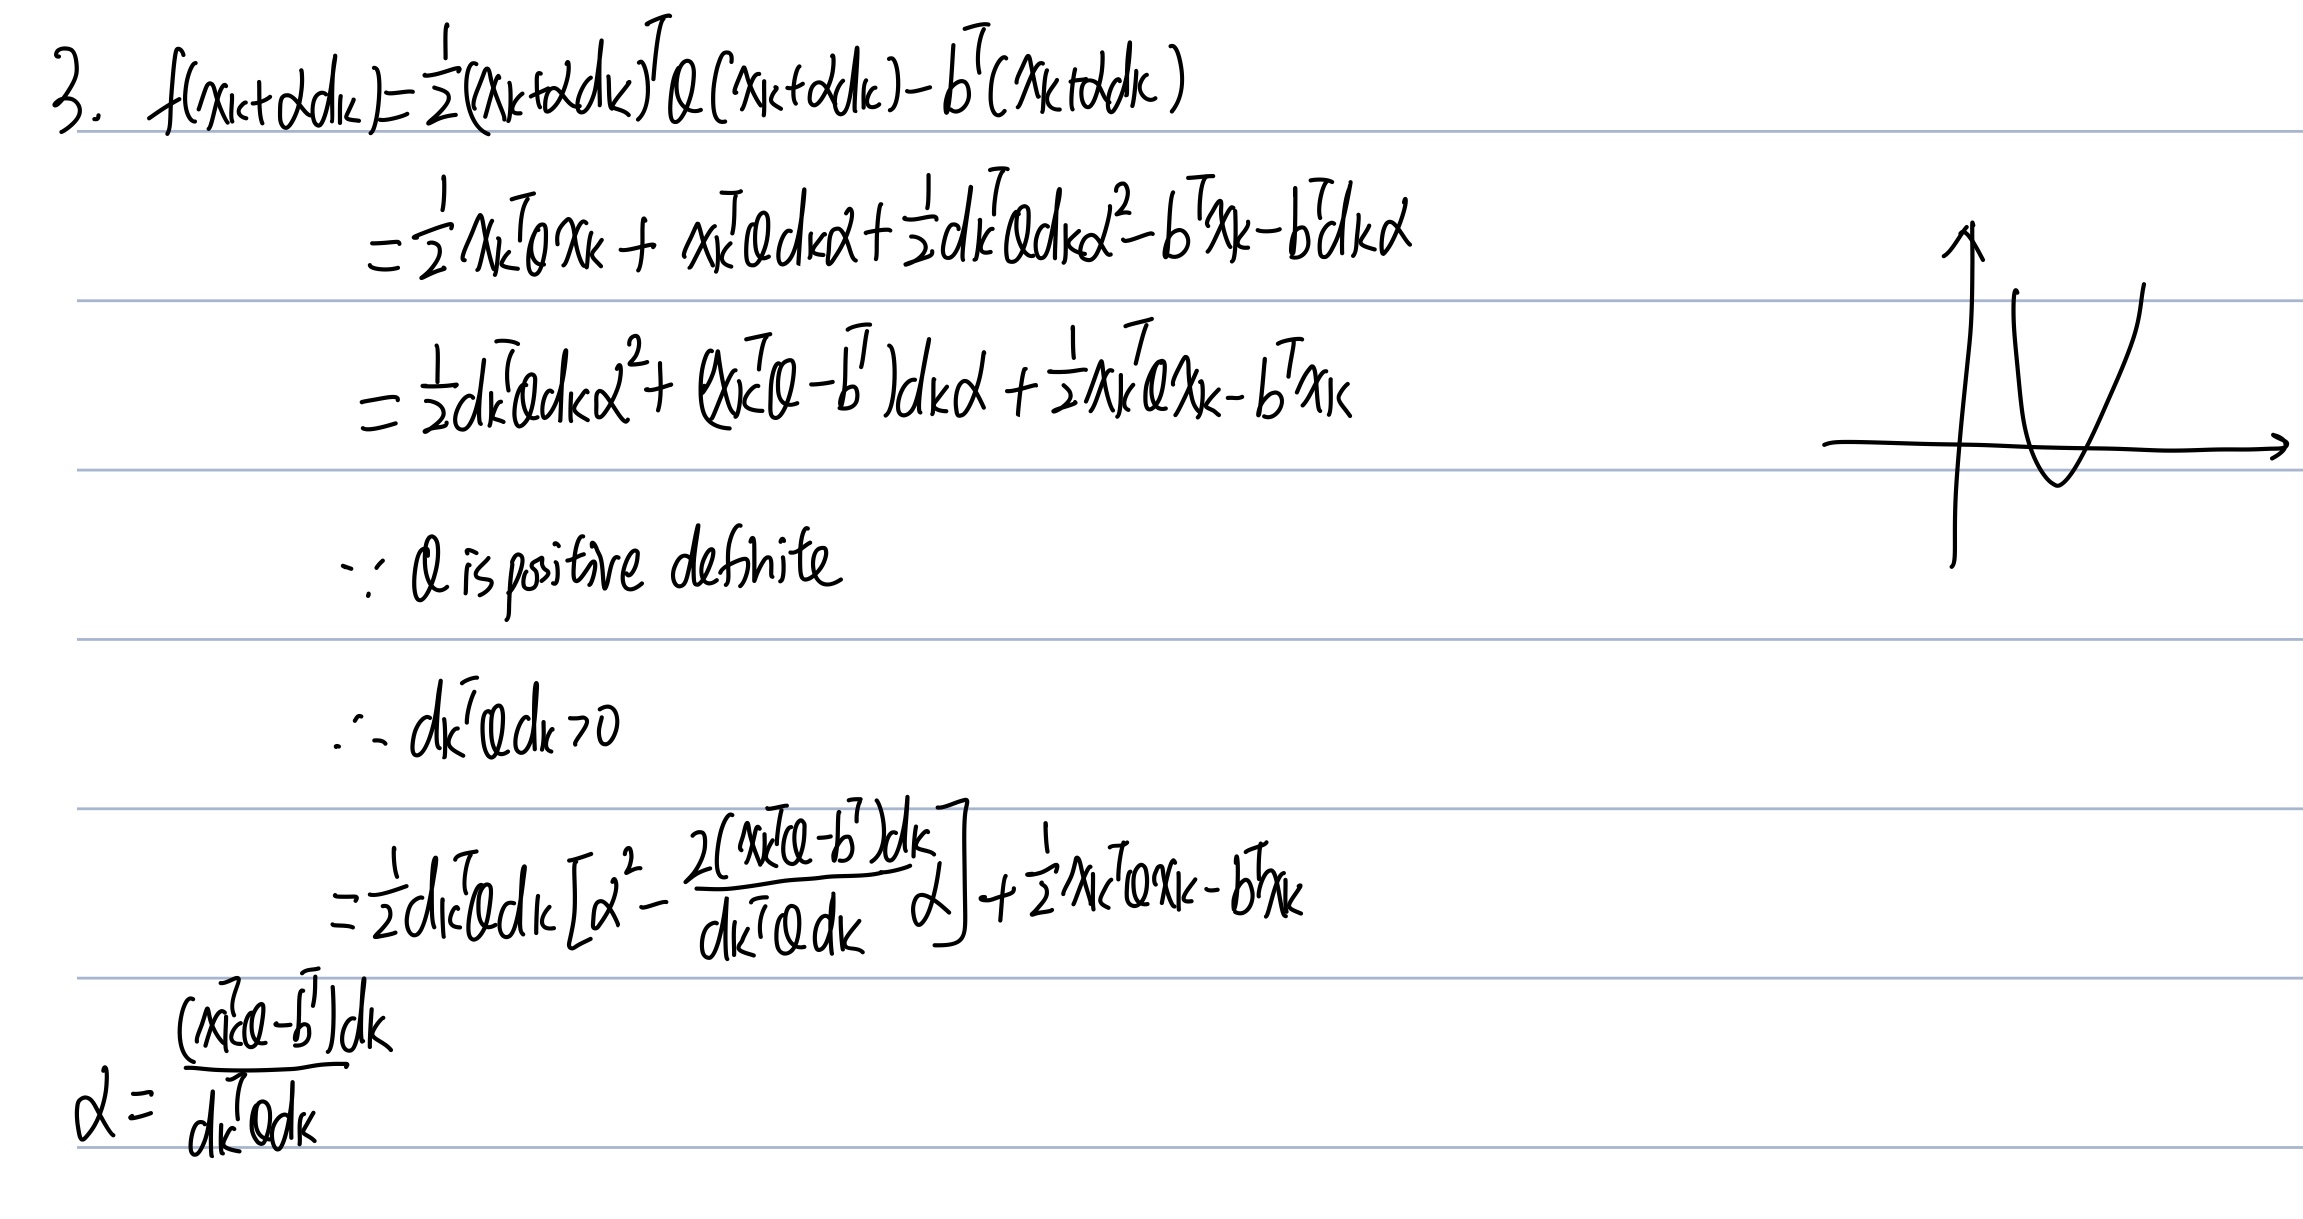 3. f(xk+αdk)=1/2(xk+αdk)^T Q(xk+αdk)-b^T(xk+αdk)
=1/2 xk^T Q xk + xk^T Q dk α + 1/2 dk^T Q dk α^2 - b^T xk - b^T dk α
=1/2 dk^T Q dk α^2 + (xk^T Q - b^T)dk α + 1/2 xk^T Q xk - b^T xk
∵ Q is positive definite
∴ dk^T Q dk >0
=1/2 dk^T Q dk [α^2 - 2(xk^T Q - b^T)dk / dk^T Q dk α] + 1/2 xk^T Q xk - b^T xk
α = (xk^T Q - b^T)dk / dk^T Q dk